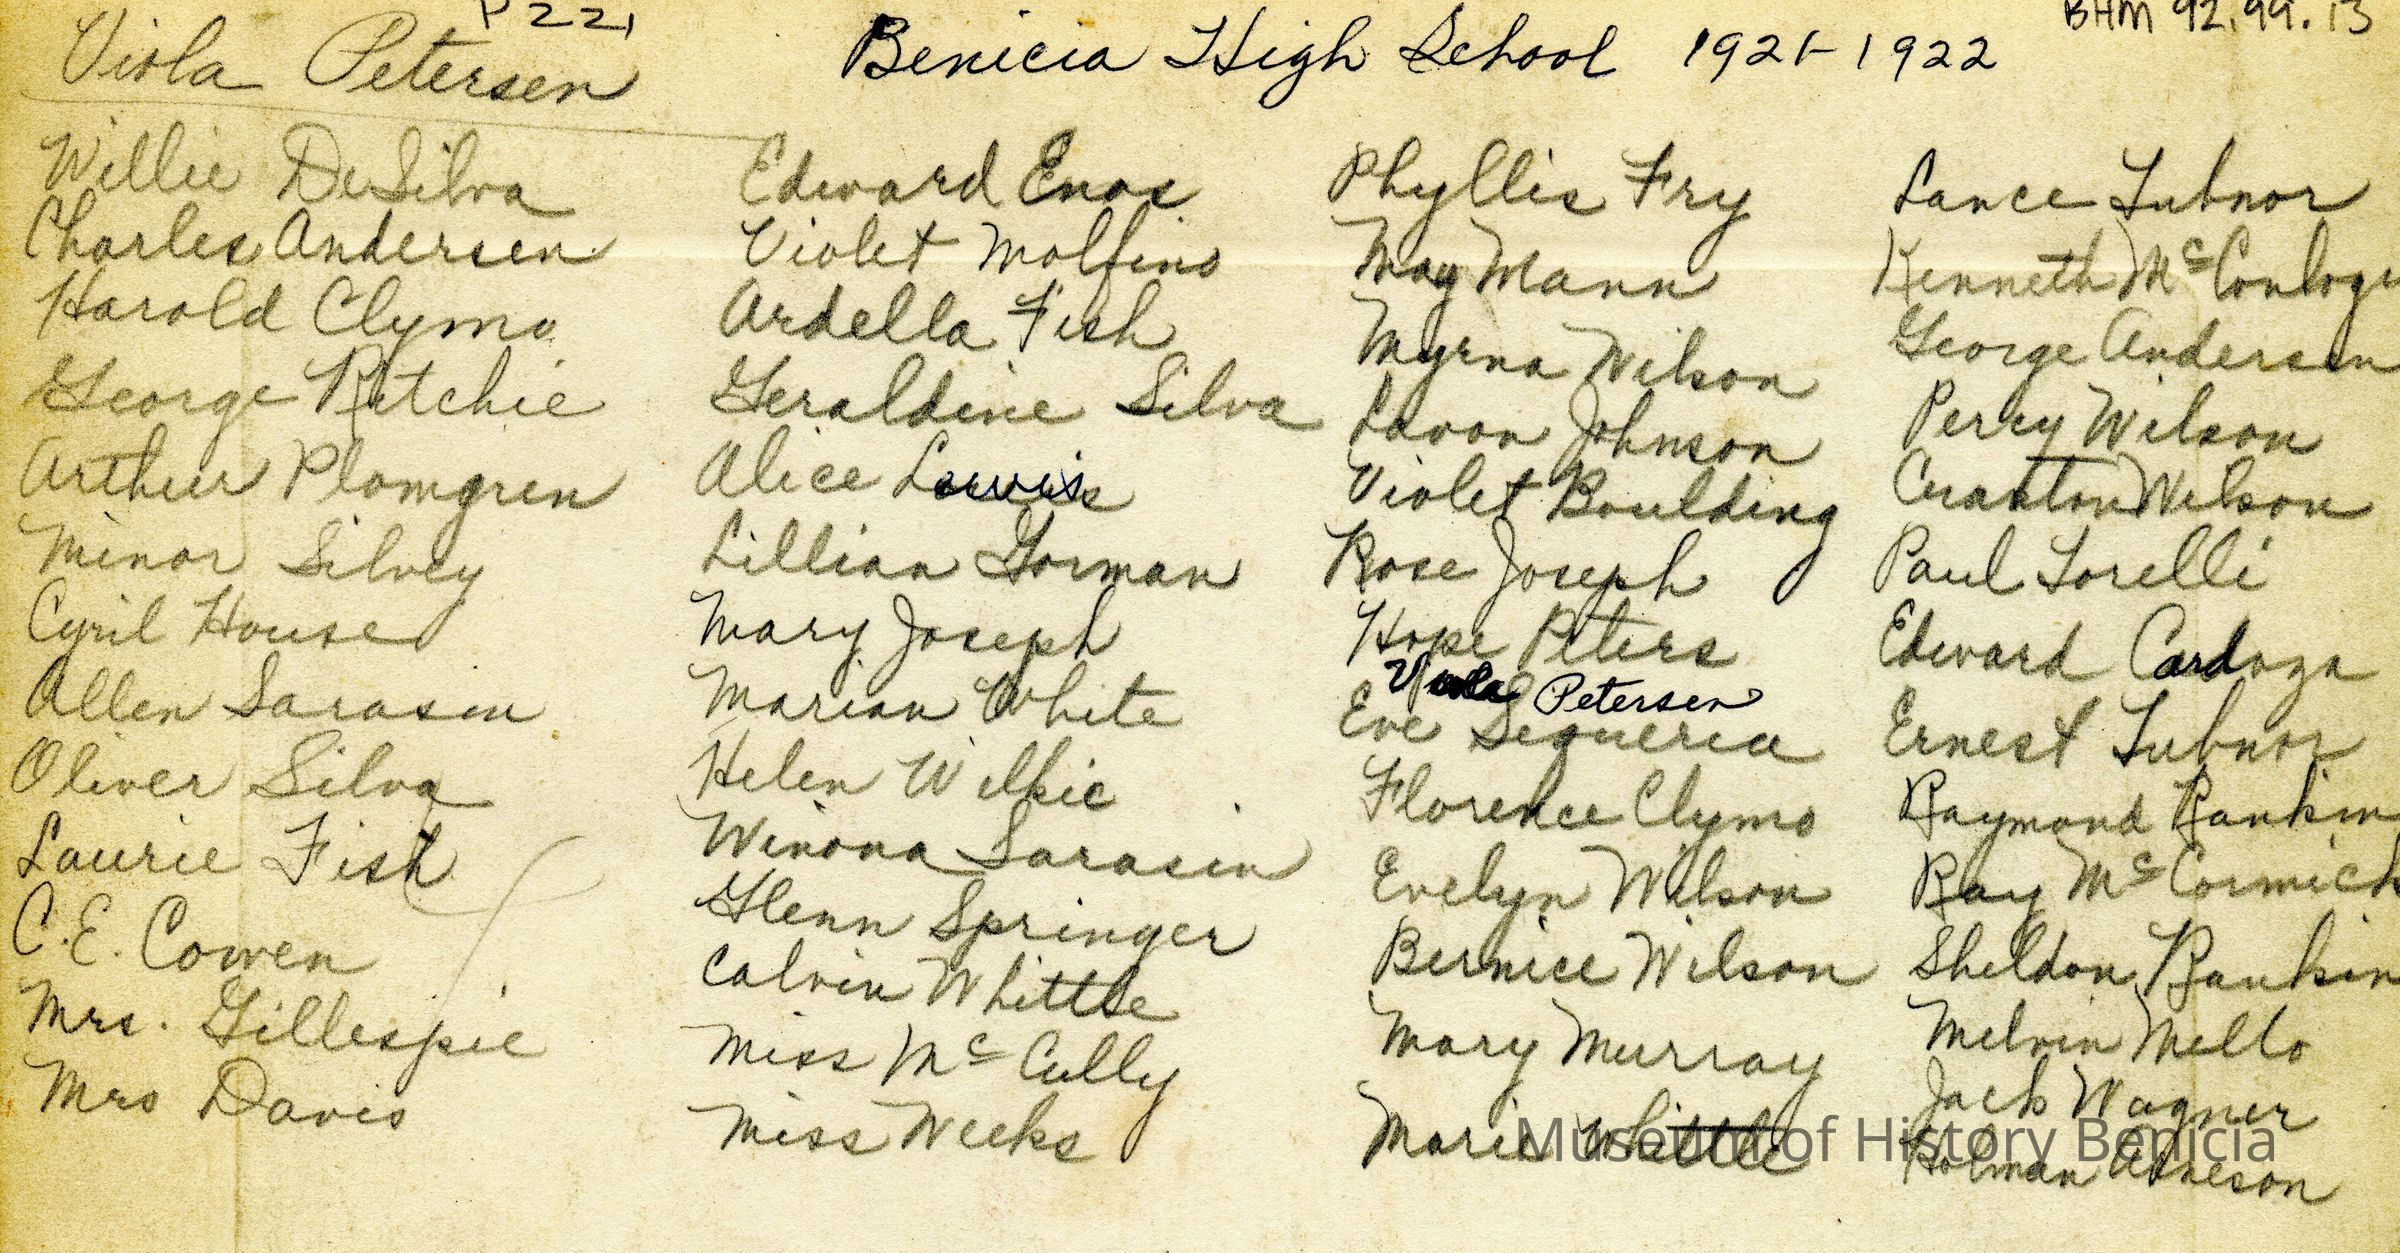 P 221
BHM 92.99.13
Viola Petersen
Benicia High School 1921-1922
Willie DeSilva
Charles Andersen
Harold Clymo
George Ritchie
Arthur Plomgren
Minor Silvey
Cyril House
Allen Sarasin
Oliver Silva
Laurie Fish
C.E. Cowen
Mrs. Gillespie
Mrs Davis
Edward Enos
Violet Molfino
Ardella Fish
Geraldine Silva
Alice Lewis
Lillian Gorman
Mary Joseph
Marian White
Helen Wilkie
Winona Sarasin
Glenn Springer
Calvin Whittle
Miss McCully
Miss Weeks
Phyllis Fry
May Mann
Myrna Wilson
Lavon Johnson
Violet Boulding
Rose Joseph
Hope Peters
Viola Petersen
Eve Sequeria
Florence Clymo
Evelyn Wilson
Bernice Wilson
Mary Murray
Marie Whittle
Lance Tubnor
Kenneth McConloge
George Andersen
Perry Wilson
Wilson
Paul Torelli
Edward Cardoza
Ernest Tubnor
Raymond Rankin
Ray McCormick
Sheldon Rankin
Melvin Mello
Jack Wagner
Holman Arneson
Museum of History Benicia